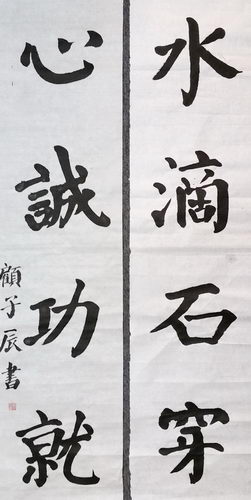 水滴石穿
心誠功就
顧子辰書